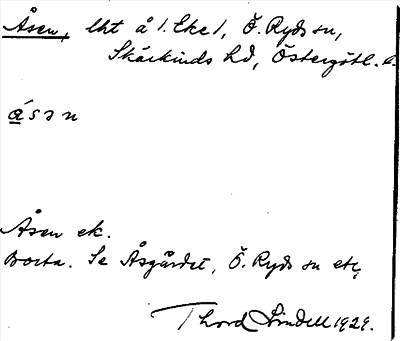 Åsen, lht å 1. Eke 1, Ö. Ryds sn,
Skärkinds hd, Östergötl. 
ásən
Åsen ek.
Borta. Se Åsgärdet, Ö. Ryds sn etc
Thord Lindell 1929.